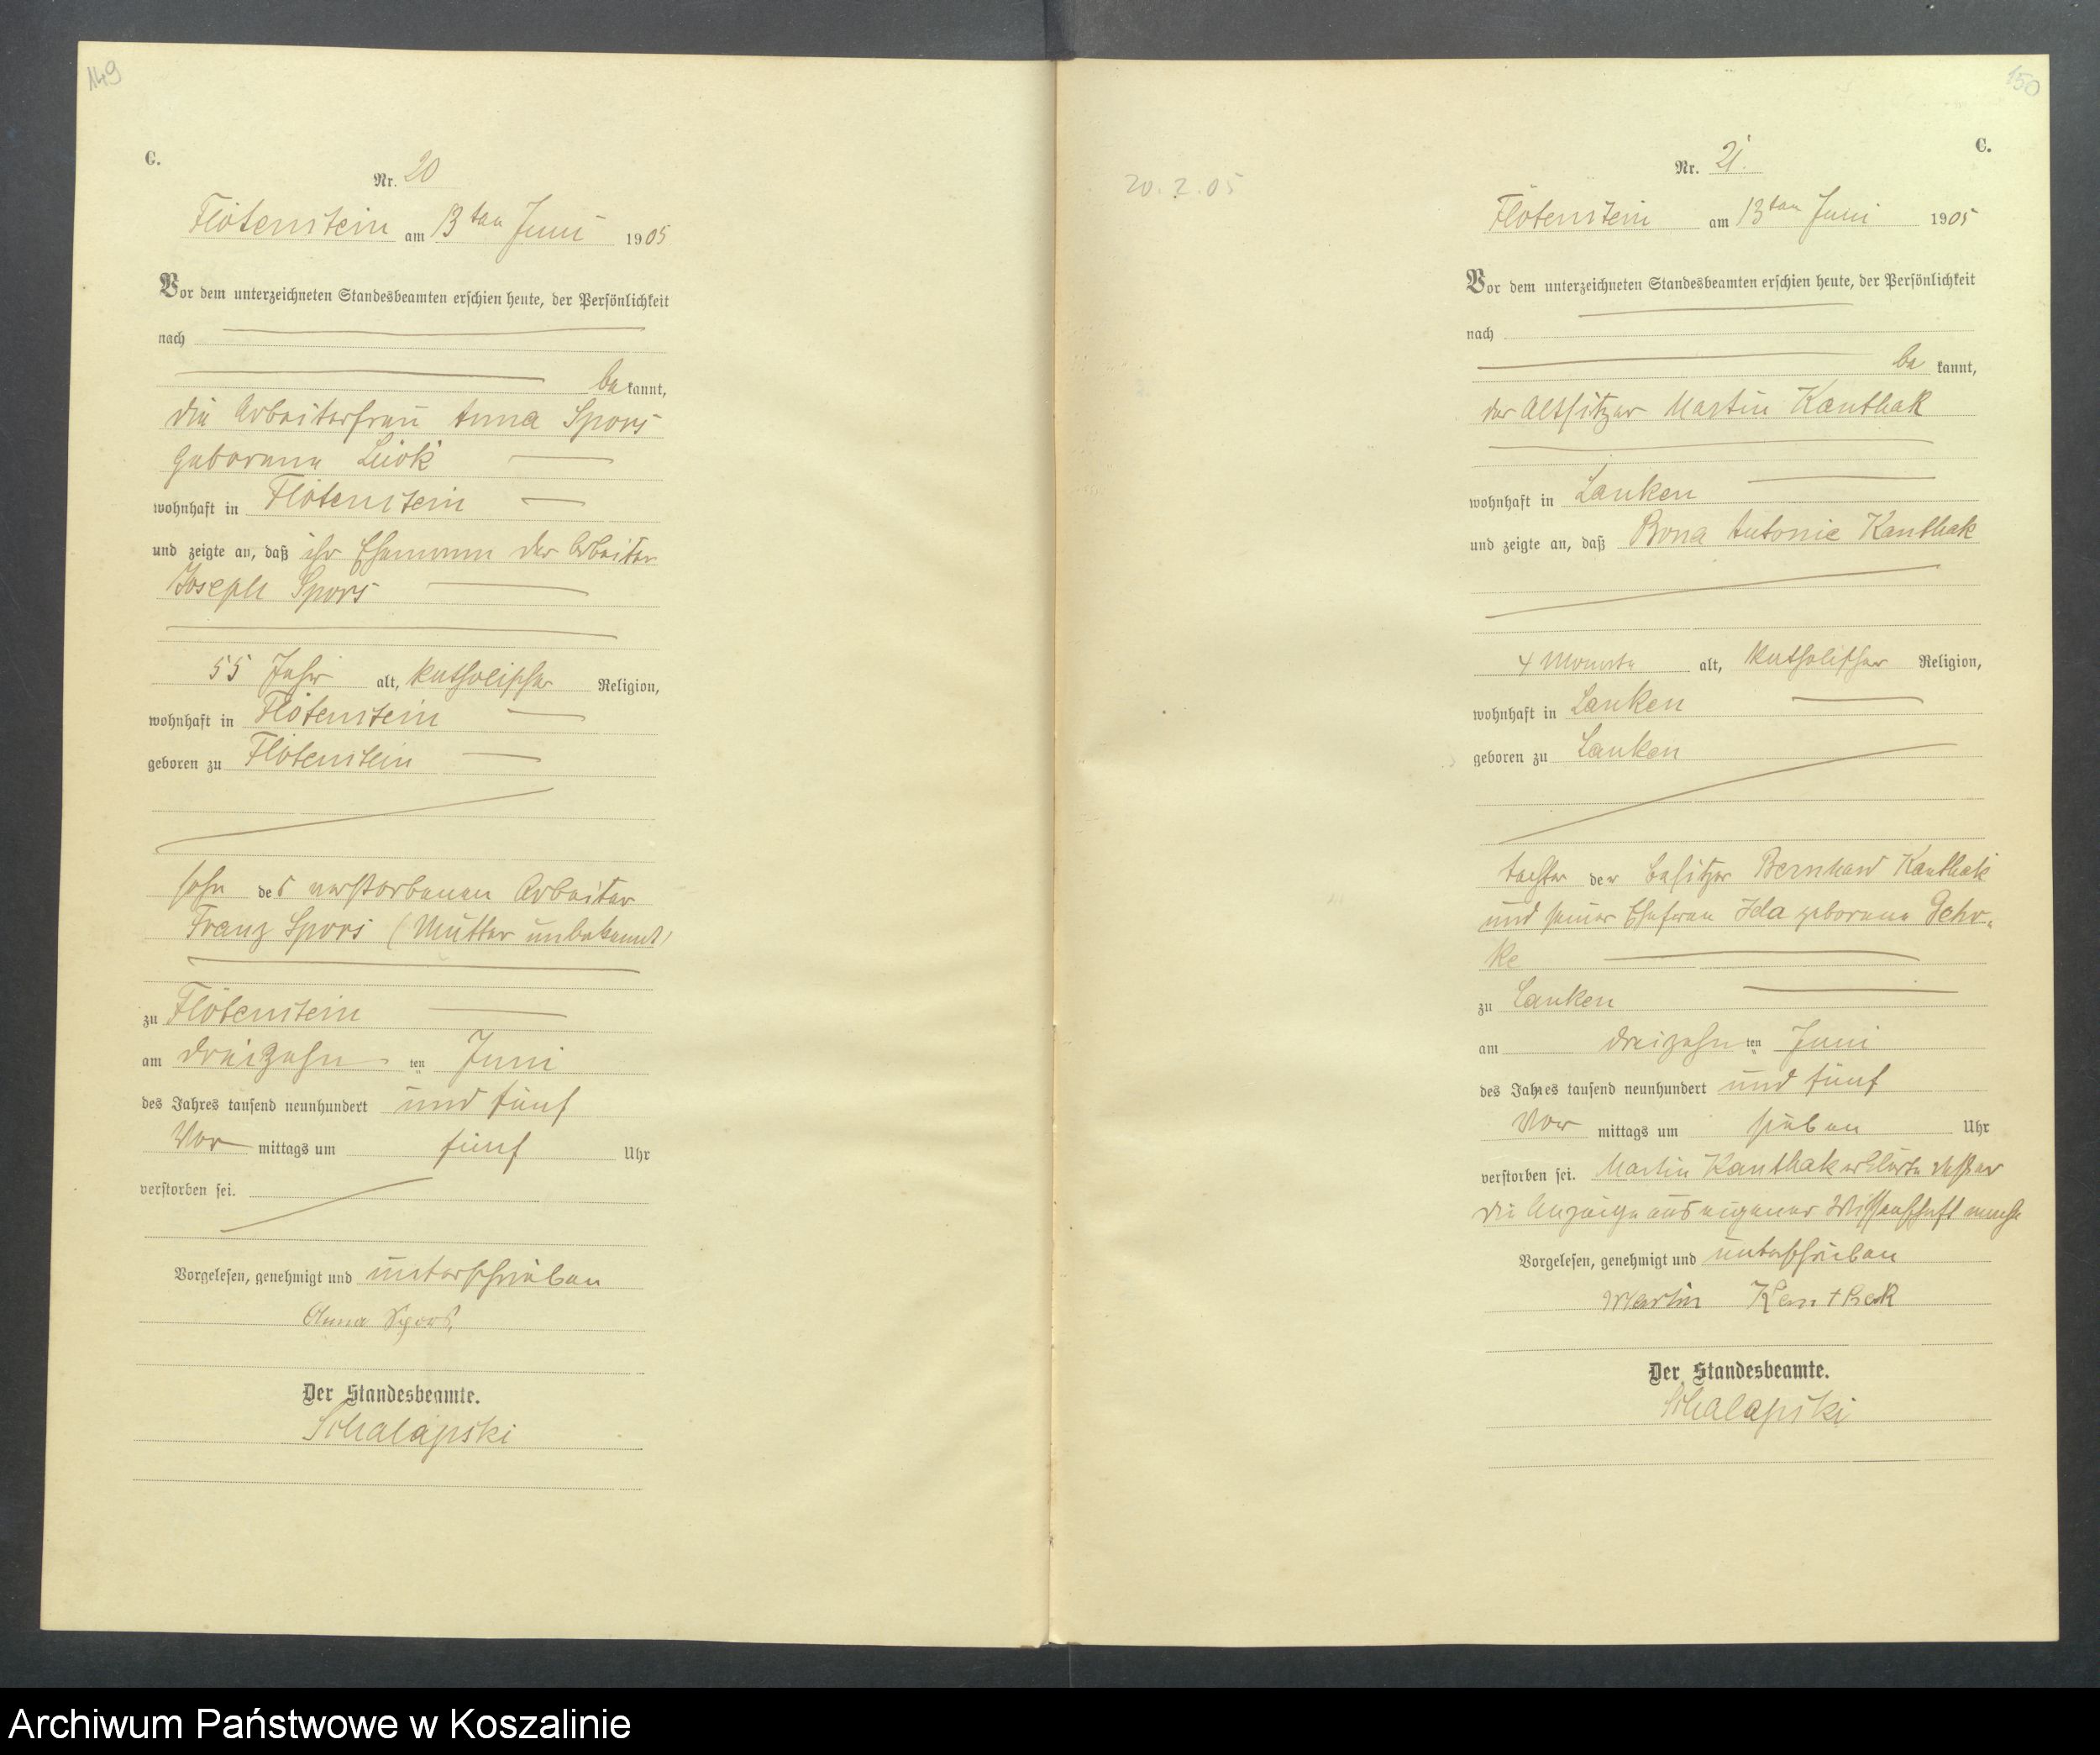 149
C.
Nr. 20
Flötenstein am 13ten Juni 1905
Vor dem unterzeichneten Standesbeamten erschien heute, der Persönlichkeit
nach
be kannt,
die Arbeiterfrau Anna Spors
geborene Lück
wohnhaft in Flötenstein
und zeigte an, daß ihr Ehemann der Arbeiter
Joseph Spors
55 Jahr alt, katholischer Religion,
wohnhaft in Flötenstein
geboren zu Flötenstein
Sohn des verstorbenen Arbeiter
Franz Spors (Mutter unbekannt)
zu Flötenstein
am dreizehn ten Juni
des Jahres tausend neunhundert und fünf
Vor mittags um fünf Uhr
verstorben sei.
Vorgelesen, genehmigt und unterschrieben
Anna Spors.
Der Standesbeamte.
Schalapski
150
C.
20.2.05
Nr. 21.
Flötenstein am 13ten Juni 1905
Vor dem unterzeichneten Standesbeamten erschien heute, der Persönlichkeit
nach
be kannt,
der Altsitzer Martin Kanthak
wohnhaft in Lanken
und zeigte an, daß Bona Antonie Kanthak
4 Monate alt, katholischer Religion,
wohnhaft in Lanken
geboren zu Lanken
Tochter der Besitzer Bernhard Kanthak
und seiner Ehefrau Ida geborene Gehr-
ke
zu Lanken
am dreizehn ten Juni
des Jahres tausend neunhundert und fünf
Vor mittags um sieben Uhr
verstorben sei. Martin Kanthak erklärte daß er
die Anzeige aus eigener Wissenschaft mache
Vorgelesen, genehmigt und unterschrieben
Martin Kanthak
Der Standesbeamte.
Schalapski
Archiwum Państwowe w Koszalinie